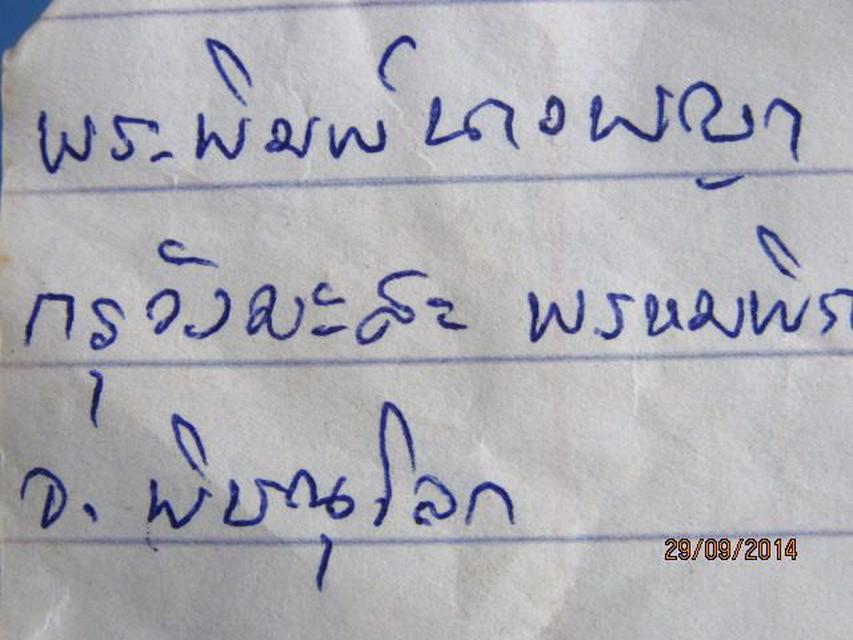 พระพิมพ์ นางพญา
กรุวังมะสะ พรหมพิร
จ. พิษณุโลก
29/09/2014